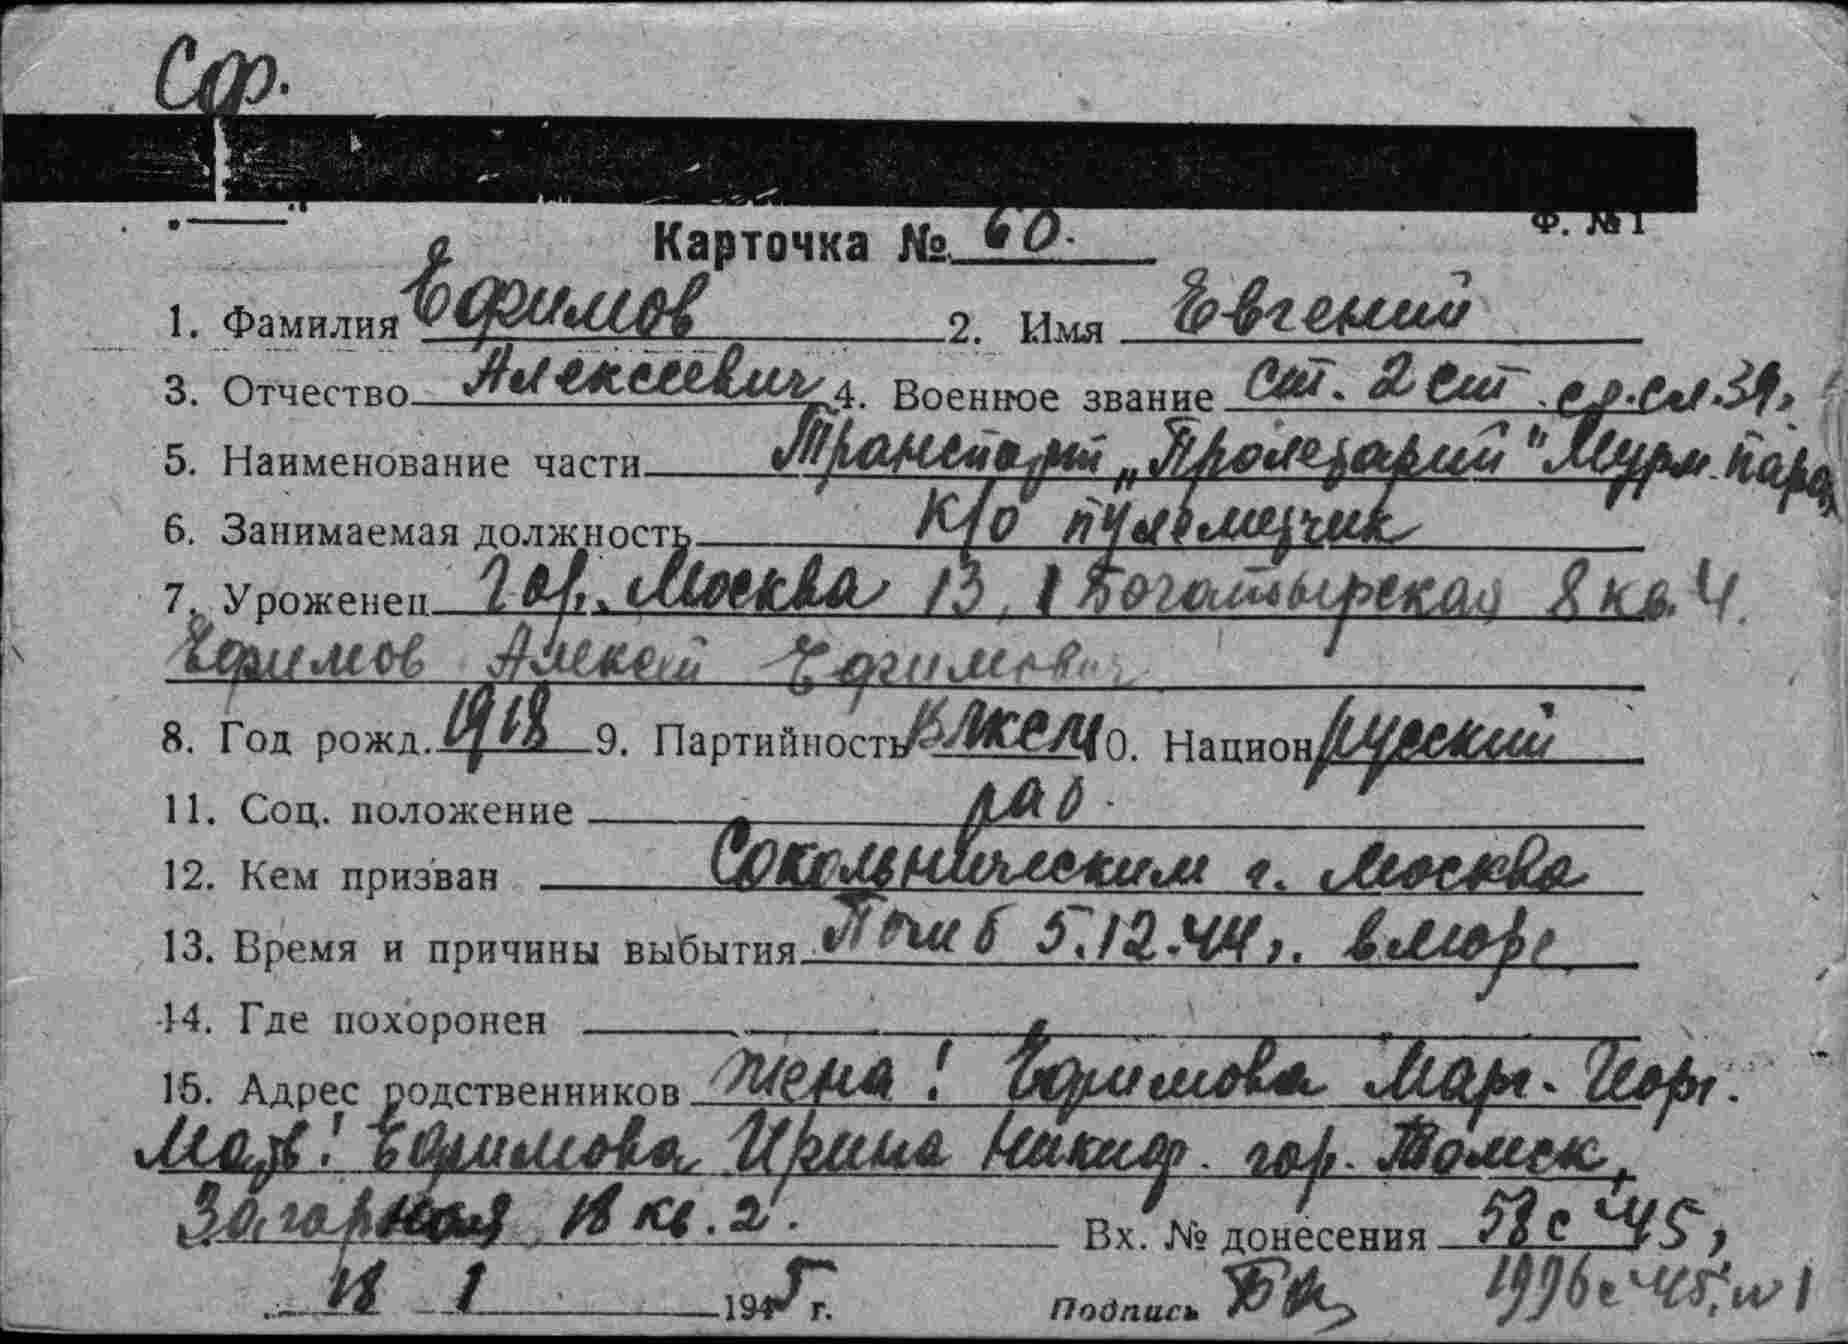 Сф.
Ф. № 1
Карточка № 60.
1. Фамилия Ефимов 2. Имя Евгений
3. Отчество Алексеевич 4. Военное звание ст. 2 ст. ср.сл.39г
5. Наименование части Транспорт „Пролетарий" Мурм. паро
6. Занимаемая должность к/о пулеметчик
7. Уроженец гор. Москва 13, 1 Богатырская 8 кв. 4.
Ефимов Алексей Ефимович
8. Год рожд. 1918 9. Партийность ВЛКСМ 10. Национ русский
11. Соц. положение раб.
12. Кем призван Сокольническим г. Москва
13. Время и причины выбытия Погиб 5.12.44г. в море
14. Где похоронен
15. Адрес родственников жена! Ефимова Марг. Геор.
Мать! Ефимова Ирина Никиф. гор. Томск,
Загорная 18 кв. 2.
Вх. № донесения 58с 45г
18 1 1945 г. Подпись 1996с 45г.